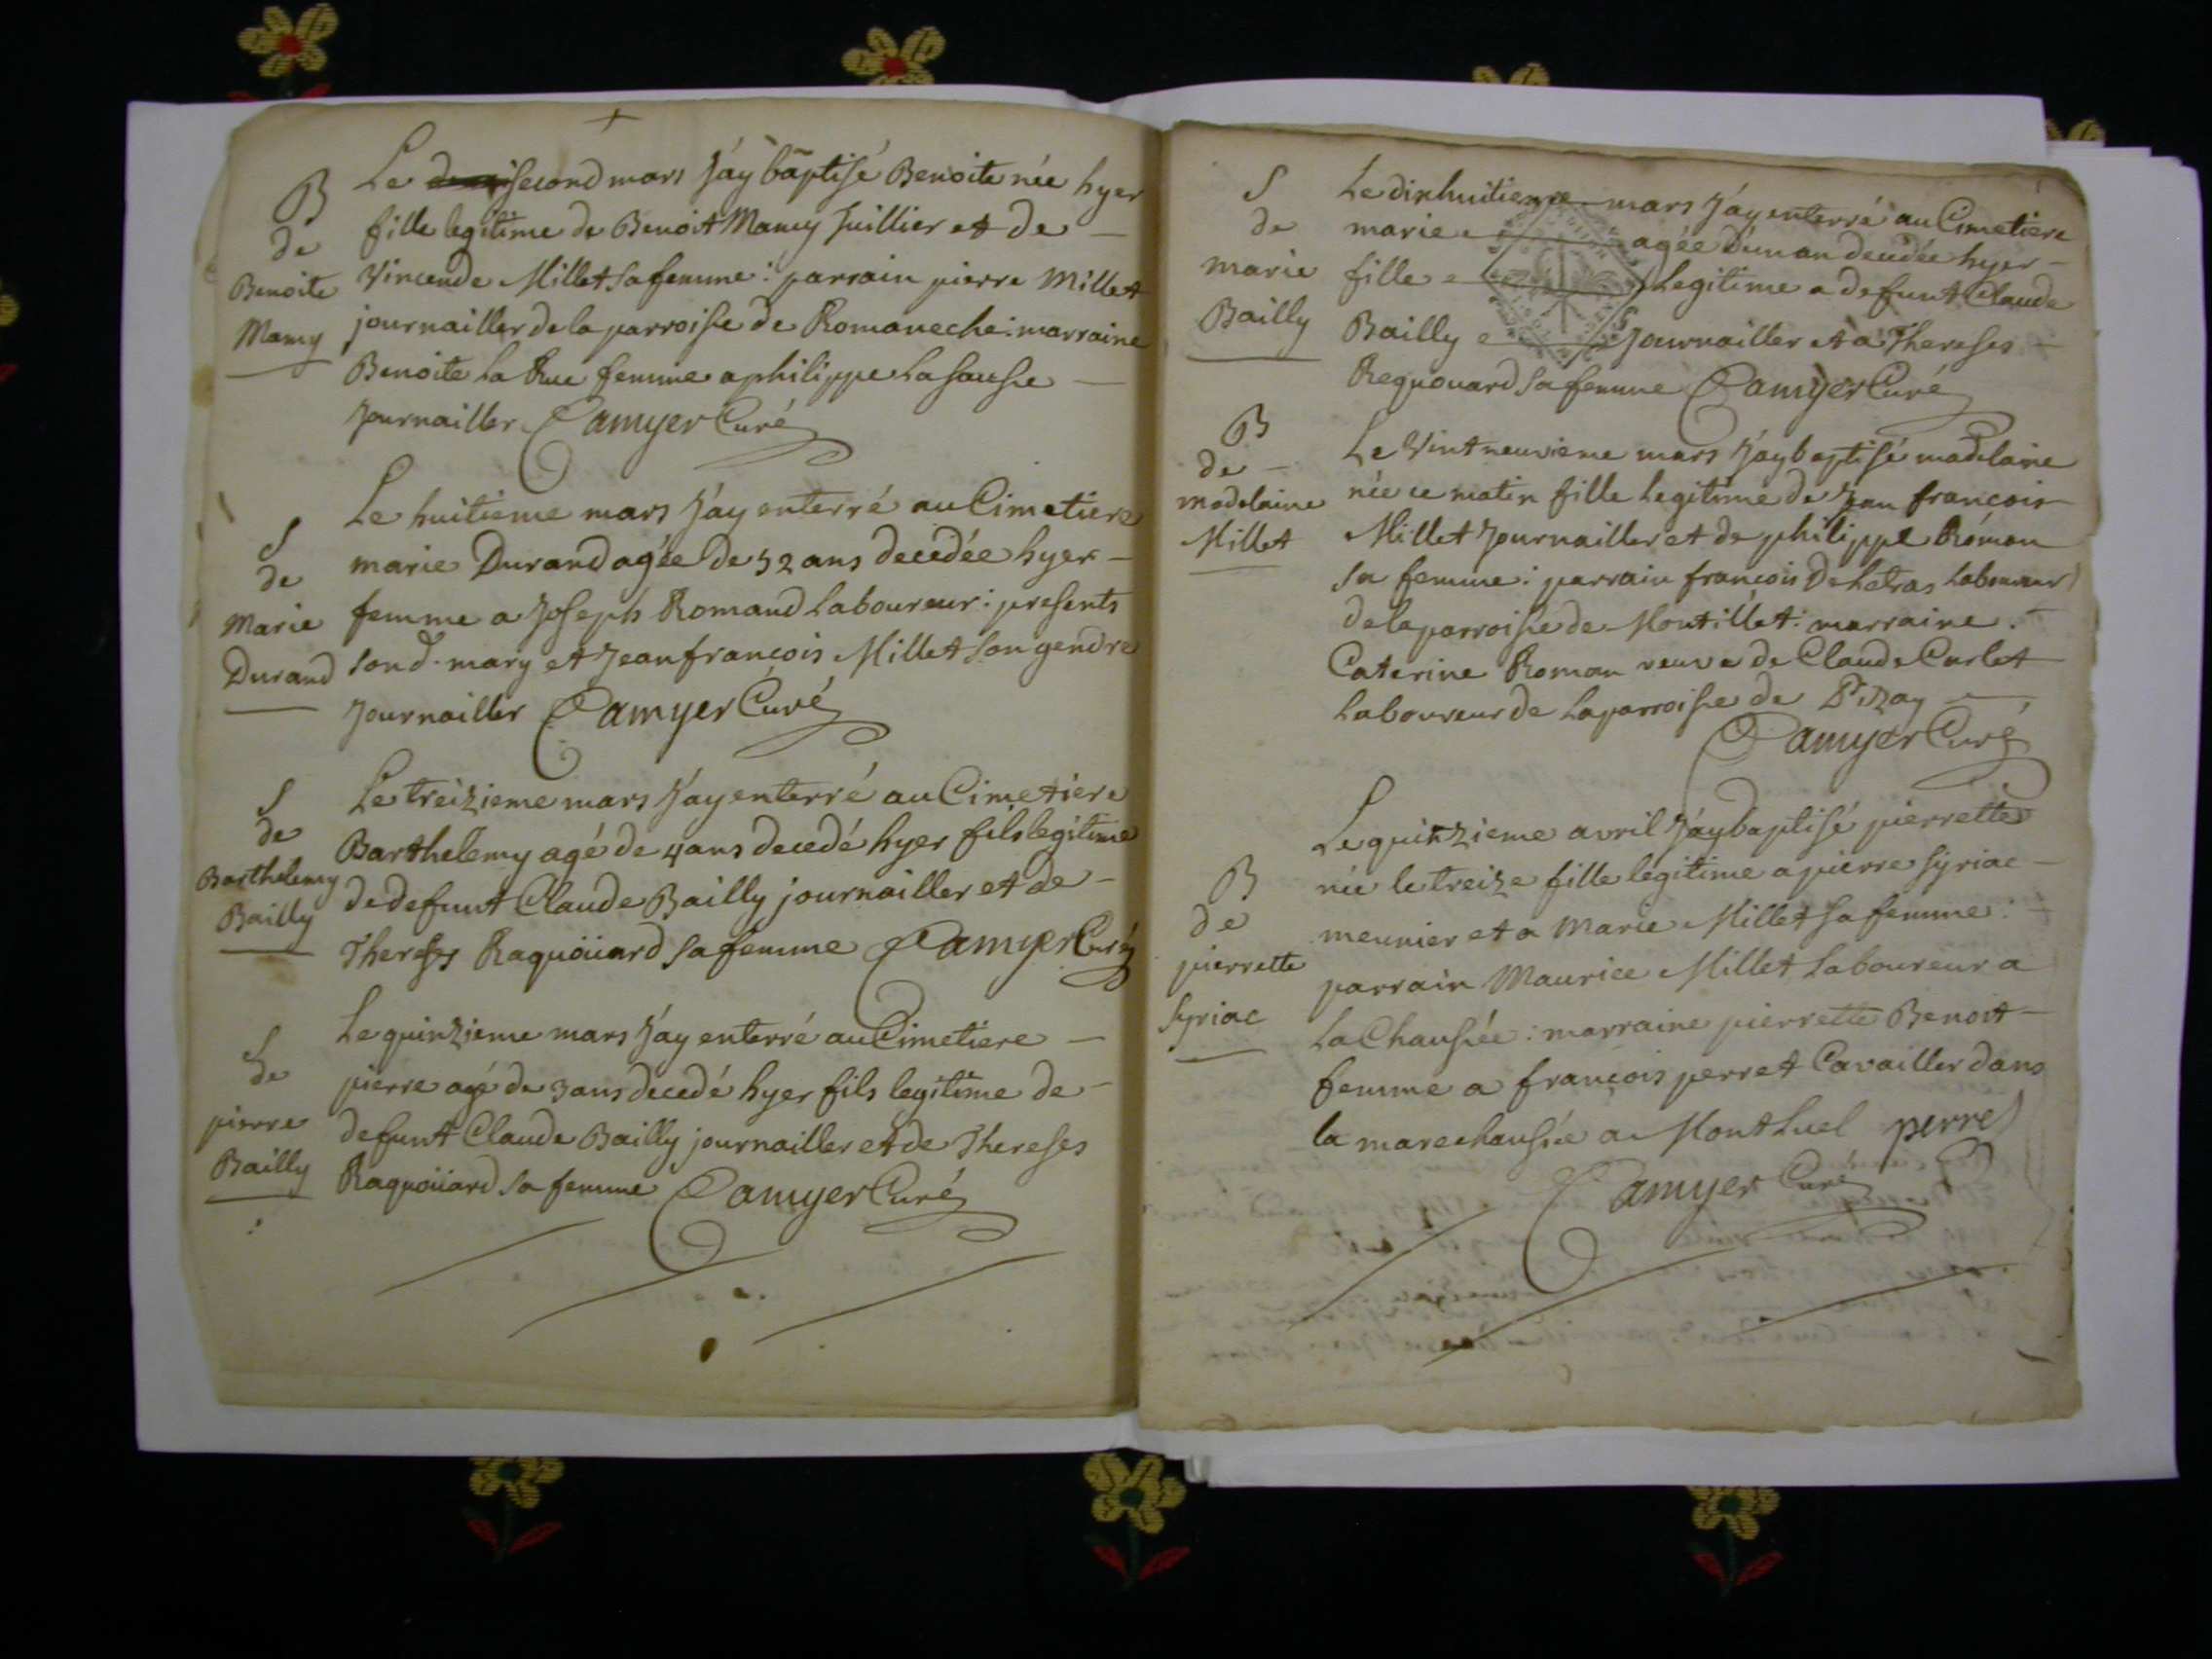 B
de
Benoite
Mamy
Le second mars J'ay baptisé Benoite née hyer
fille legitime de Benoit Mamy Juillier et de
Vincende Millet sa femme: parrain pierre Millet
journailler de la parroisse de Romaneche: marraine
Benoite La Rue femme a philippe Lasausse
Journailler Camyer Curé
S
de
Marie
Durand
Le huitieme mars J'ay enterré au Cimetiere
marie Durand agée de 52 ans decedée hyer
femme a Joseph Romand Laboureur: presents
son d. mary et Jean françois Millet son gendre
Journailler Camyer Curé
S
de
Barthelemy
Bailly
Le treizieme mars J'ay enterré au Cimetiere
Barthelemy agé de 4 ans decedé hyer fils legitime
de defunt Claude Bailly journailler et de
Thereses Raquoüard sa femme Camyer Curé
S
de
pierre
Bailly
Le quinzieme mars J'ay enterré au Cimetiere
pierre agé de 3 ans decedé hyer fils legitime de
defunt Claude Bailly journailler et de Thereses
Raquoüard sa femme Camyer Curé
S
de
marie
Bailly
Le dixhuitieme mars J'ay enterré au Cimetiere
marie agée d'un an decedée hyer
fille legitime a defunt Claude
Bailly Journailler et a Thereses
Requouard sa femme Camyer Curé
B
de
madelaine
Millet
Le Vint neuvieme mars J'ay baptisé madelaine
née ce matin fille legitime de Jean françois
Millet Journailler et de philippe Roman
sa femme: parrain françois Laboureur
de la parroisse de Montillet: marraine
Caterine Roman veuve de Claude Carlet
Laboureur de La parroisse de
Camyer Curé
B
de
pierrette
Syriac
Le quinzieme avril J'ay baptisé pierrette
née le treize fille legitime a pierre Syriac
meunier et a Marie Millet sa femme:
parrain Maurice Millet Laboureur a
La Chaussée: marraine pierrette Benoit
femme a françois perret Cavailler dans
la marechaussée a Montluel perret
Camyer Curé